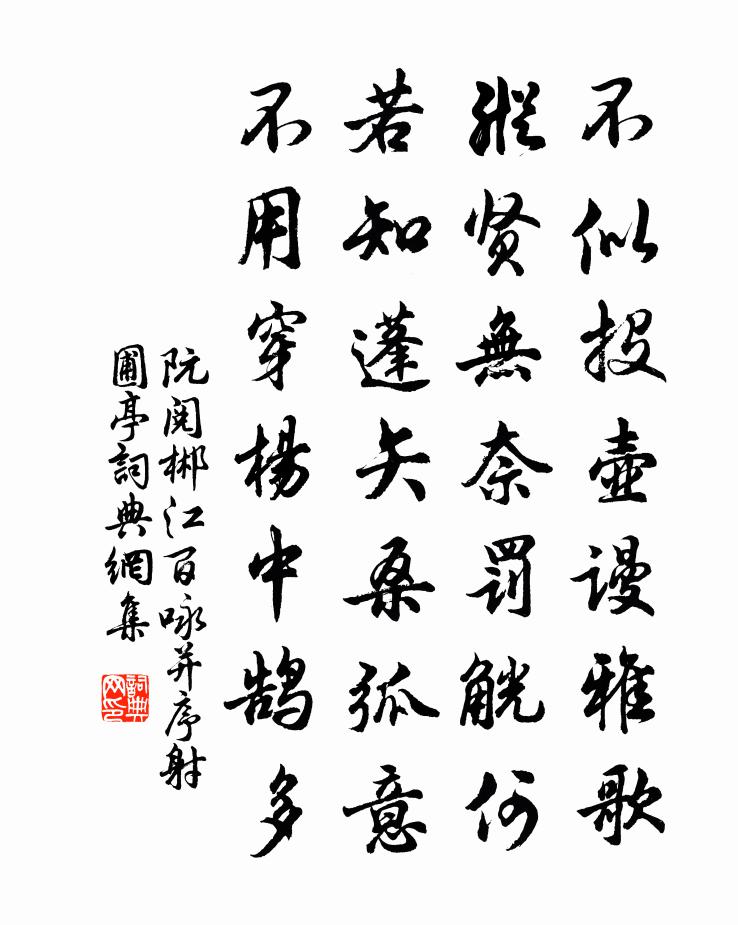 不似投壺謾雅歌
縱贤無奈罰觥何
若知蓬矢桑弧意
不用穿楊中鵠多
阮閱郴江百咏并序射
圃亭詞典網集
詞典
网印